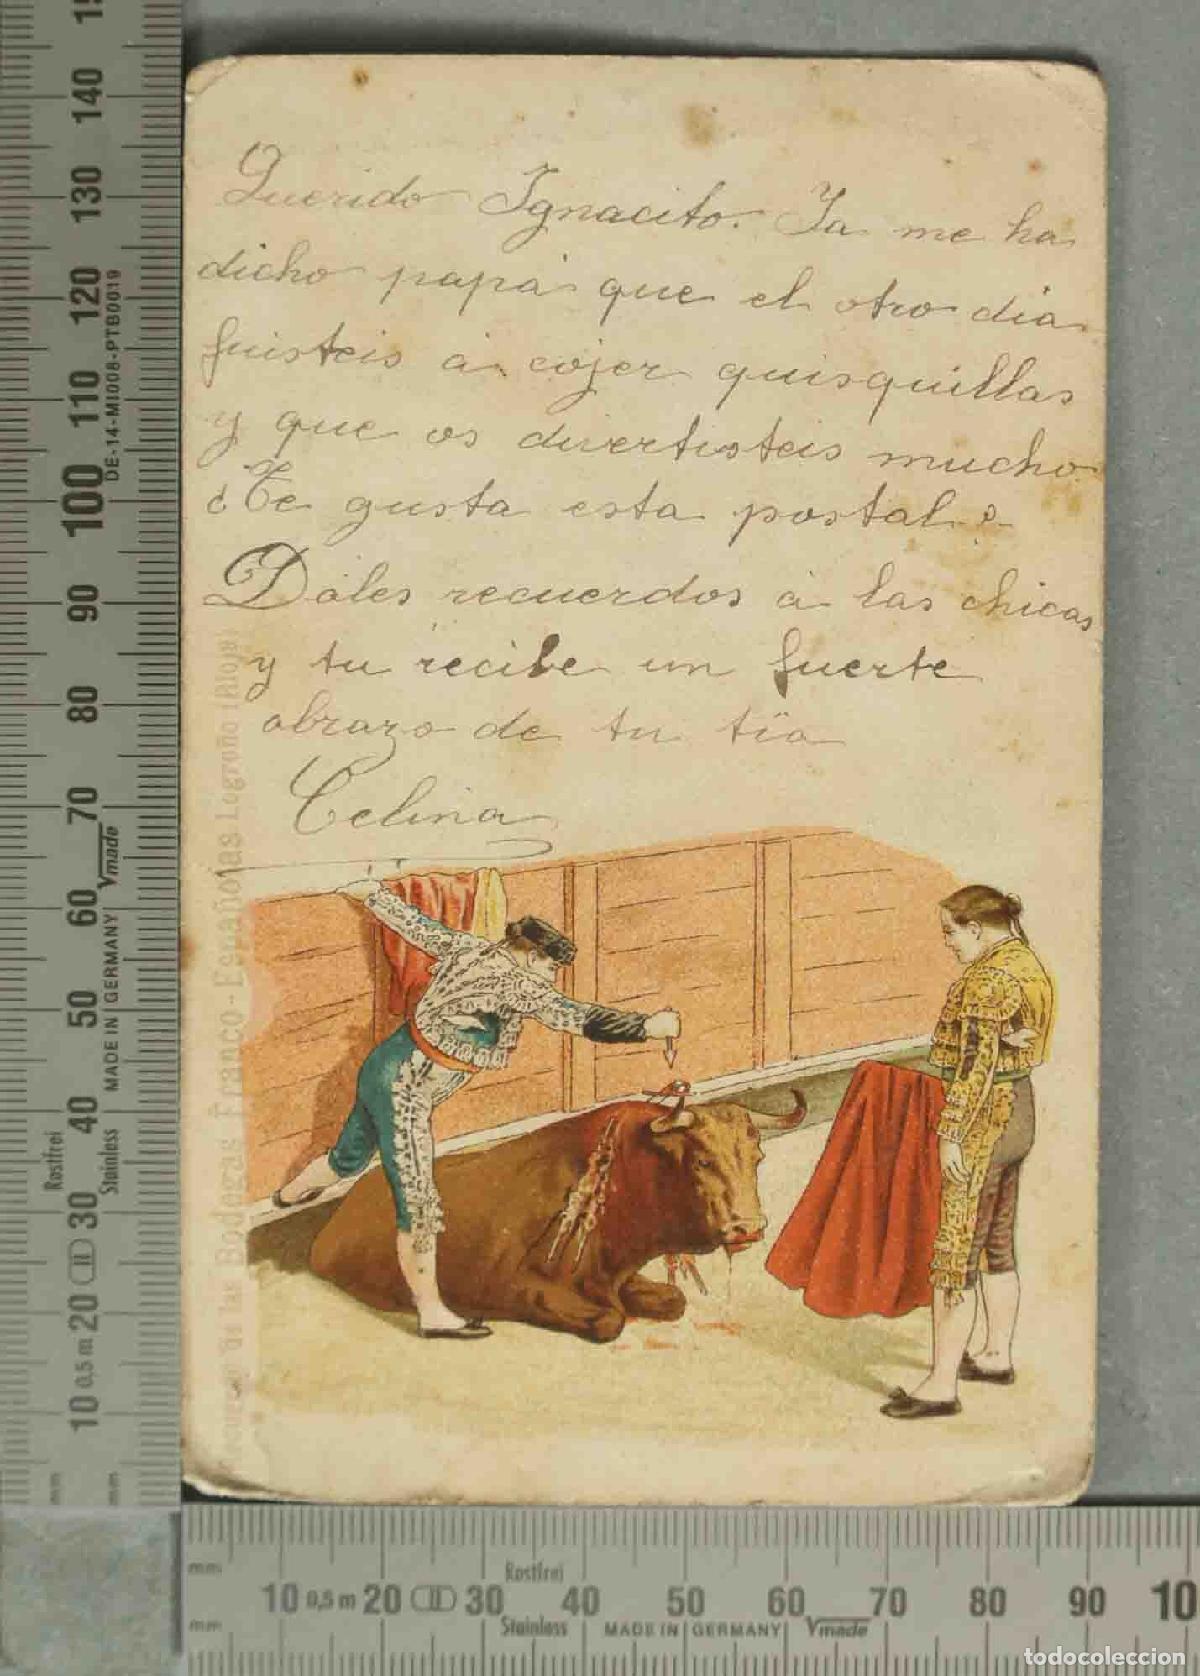 Querido Ignacito. Ya me ha
dicho papá que el otro dia
fuisteis á cojer quisquillas
y que os divertisteis mucho
¿Te gusta esta postal?
Dáles recuerdos á las chicas
y tu recibe un fuerte
abrazo de tu tia
Celina
Recuerdo de las Bodegas Franco-Españolas Logroño (Rioja)
10 0,5 m 20 30 40 50 60 70 80 90 100 110 120 130 140
Rostfrei
Stainless
MADE IN GERMANY Vmade
DE-14-MI008-PTB0019
mm
mm
mm
mm
10 0,5 m 20 30 40 50 60 70 80 90 10
Rostfrei
Stainless MADE IN GERMANY Vmade
todocoleccion